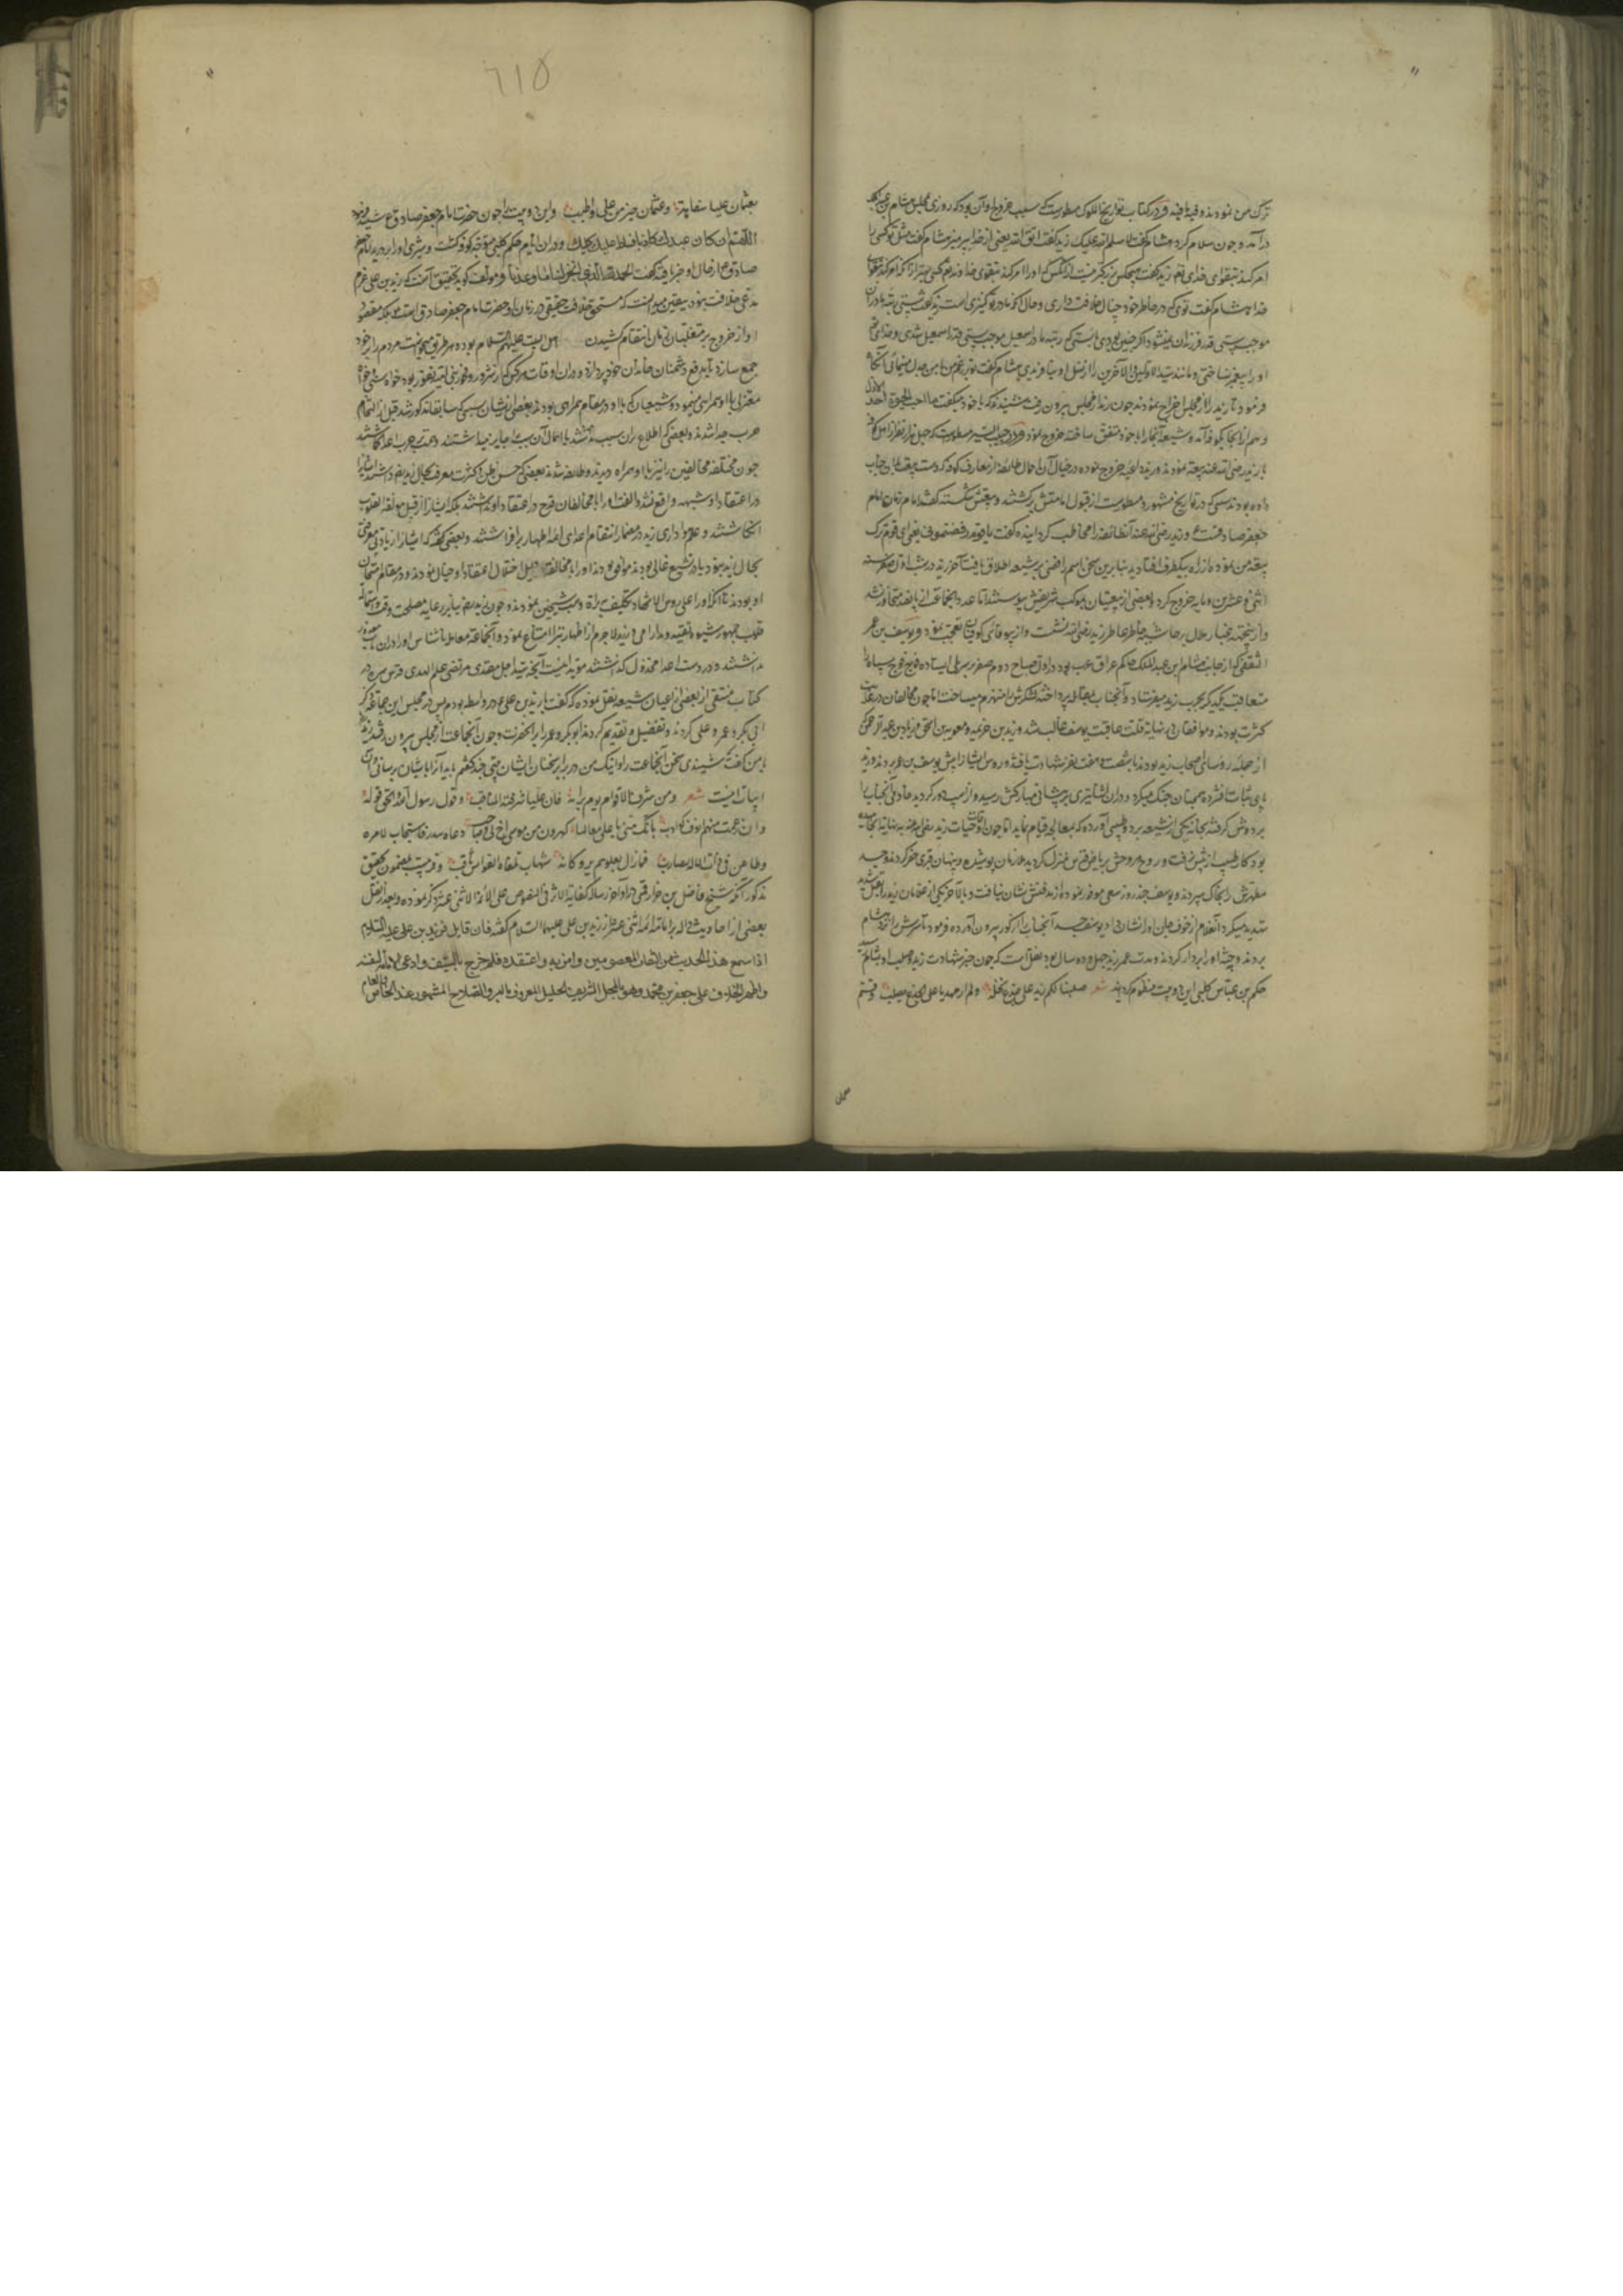 ترک من نمودند و فیه ما فیه و در کتاب تواریخ الملوک مسطورست که سبب خروج او آن بود که روزی مجلس هشام بن عبد الملک
در آمد و چون سلام کرد هشام گفت لا سلم الله علیک زید گفت اتق الله یعنی از خدا بپرهیز هشام گفت مثل تو کسی را
امر کند بتقوای خدای تعالی زید گفت هیچکس بزرگتر نیست از آنکس که او را امر کنند بتقوی خدا
هشام گفت توئی که در خاطر خود خیال خلافت داری و حال آنکه مادر تو کنیزی است زید گفت پستی رتبه مادران
موجب پستی قدر فرزندان نمیشود اگر چنین بودی بایستی که رتبه مادر اسمعیل موجب پستی قدر اسمعیل شدی و خدای تعالی
او را پیغمبر نساختی و مانند سید الاولین و الآخرین را از نسل او نیافریدی هشام گفت
فرمود تا زید را از مجلس اخراج نمودند چون زید از مجلس بیرون رفت میشنیدند که با خود میگفت ما احب الحیوة احد الا ذل
و هم از آنجا بکوفه آمد و شیعه آنجا را با خود متفق ساخته خروج نمود و در حبیب السیر مسطورست که چهل هزار نفر از اهل کوفه
با زید رضی الله عنه بیعت نمودند و زید داعیه خروج نموده در خلال آن احوال طائفه از معارف کوفه که دست بیعت بآن جناب
داده بودند بسببی که در تواریخ مشهور و مسطورست از قول امامتش برگشتند و بیعتش شکستند گفتند امام زمان امام
جعفر صادقست ع و زید رضی الله عنه آن طائفه را مخاطب گردانیده گفت یا قوم رفضتمونی یعنی ای قوم ترک
بیعت من نموده از راه بیکطرف افتادید بنابرین سخن اسم رافضی بر شیعه اطلاق یافت آخر زید در شب اول صفر سنه
اثنی و عشرین و مایه خروج کرد و بعضی از بیعتیان بموکب شریفش پیوستند اما عدد آنجماعت از پانصد متجاوز نشد
و ازینجهت غبار ملال بر حاشیه خاطر عاطر زید رضی الله عنه نشست و از بیوفائی کوفیان تعجب نمود و یوسف بن عمر
الثقفی که از جانب هشام بن عبد الملک حاکم عراق عرب بود در اول صباح دوم صفر بر سر پلی ایستاده فوج فوج سپاه را
متعاقب یکدیگر بحرب زید میفرستاد و آنجناب بمقابله پرداخته لشکرش را منهزم میساخت اما چون مخالفان در غایت
کثرت بودند و موافقان در نهایت قلت عاقبت یوسف غالب شد و زید بن خزیمه و معویه بن اسحق و زیاد بن عبد الرحمن
از جمله رؤسای اصحاب زید بودند با شصت و هفت نفر شهادت یافتند و رؤس ایشانرا پیش یوسف بن عمر بردند و زید
پای ثبات افشرده همچنان جنگ میکرد و در آن اثنا تیری بر پیشانی مبارکش رسید و از اسب در گردید خادمی آنجناب را
بر دوش گرفته بخانه یکی از شیعه برد و طبیبی آورده که بمعالجه قیام نماید اما چون اوقات حیات زید رضی عنه بنهایت انجامیده
بود کار طبیب از پیش نرفت و روح پر فتوحش بریاض قدس منزل گزید ملازمان پوشیده و پنهان قبری حفر کردند و جسد
مطهرش را بخاک سپردند و یوسف چند روز سعی موفور نموده از مدفنش نشان نیافت و بالاخر یکی از غلامان زید را بقتل تهدید
شدید میکرد آنغلام از خوف جان او را نشان داد یوسف جسد آنجناب را از گور بیرون آورده فرمود تا سرش را نزد هشام
بردند و جثه او را بر دار کردند و مدت عمر زید چهل و دو سال بود نقل است که چون خبر شهادت زید و صلب او بشام رسید
حکم بن عباس کلبی این دو بیت منظوم گردانید شعر صلبنا لکم زیدا علی جذع نخلة ولم ار مهدیا علی الجذع یصلب وقستم
عثمان
٦١٥
بعثمان علیا سفاهة وعثمان خیر من علی واطیب و این دو بیت را چون حضرت امام جعفر صادق ع شنید فرمود
اللهم ان کان عبدک کاذبا فسلط علیه کلبک و در آن ایام حکم کلبی متوجه کوفه گشت و شیری او را بر درید امام جعفر
صادق ع از حال او خبر یافته گفت الحمد لله الذی انجز لنا ما وعدنا و مؤلف گوید تحقیق آنست که زید بن علی هرگز
مدعی خلافت نبود بیقین میدانست که مستحق خلافت حقیقی در زمان او حضرت امام جعفر صادق است بلکه مقصود
او از خروج بر متغلبان زمان انتقام کشیدن اهل البیت علیهم السلام بوده و بهر طریق میخواست مردم را بر خود
جمع سازد تا بدفع دشمنان خاندان خود پردازد و در آن اوقات هر کس که از شرور و فجور بنی امیه نفور بود خواه سنی خواه
معتزلی با او همراهی مینمود و شیعیان که با او در مقام همراهی بودند بعضی از ایشان بسببی که سابقا مذکور شد قبل از التحام
حرب جدا شدند و بعضی که اطلاع بر آن سبب نداشتند
چون مختلفه مخالفین را نیز با او همراه دیدند دو طایفه شدند بعضی که حسن ظن و کثرت معرفت بحال زید داشتند
در اعتقاد او شبهه واقع نشد و الفت او را با مخالفان قدح در اعتقاد او ندانستند بلکه ایشانرا از قبیل مؤلفة القلوب
انگاشتند و علم هواداری زید در مضمار انتقام اعدای ائمه اطهار برافراشتند و بعضی دیگر که ایشانرا زیاده معرفتی
بحال زید نبود یا در تشیع غالی بودند موافق بودن او را با مخالف دلیل اختلال اعتقاد او خیال نمودند و در مقام امتحان
او بودند تا آنکه او را علی رؤس الاشهاد تکلیف براءة و سب شیخین نمودند و چون زید رضی بنابر رعایه مصلحت وقت و استمالت
قلوب جمهور شیوه تقیه و مدارا می ورزید لاجرم از اظهار تبرا امتناع نمود و آنجماعه معامله ناشناس او را در آن باب معذور
نداشتند و در دست اعدا مخذول گذاشتند مؤید اینست آنچه سید اجل مقتدی مرتضی علم الهدی قدس سره در
کتاب منتقی از بعضی از اعیان شیعه نقل نموده که گفت با زید بن علی در واسط بودم پس در مجلس این جماعة ذکر
ابی بکر و عمر و علی کردند و تفضیل و تقدیم کردند ابو بکر و عمر را بر آنحضرت و چون آنجماعت از مجلس بیرون رفتند زید
با من گفت که شنیدی سخن آنجماعت را و اینک من در برابر سخنان ایشان بیتی چند گفتم باید آنرا بایشان برسانی و آن
ابیات اینست شعر ومن شرف الاقوام یوما برایه فان علیا شرفته المناقب وقول رسول الله والحق قوله
وان رغمت منهم انوف کواذب بانک منی یا علی معالنا کهرون من موسی اخ لی وصاحب دعاه ببدر فاستجاب لامره
وما هن فی ذات الاله یضارب فما زال یعلوهم به وکانه شهاب تلقاه القوابس ثاقب و قریب بمضمون تحقیق
مذکور آنکه شیخ فاضل بن خزاز قمی در اواخر رساله کفایة الاثر فی النصوص علی الائمة الاثنی عشر ذکر نموده و بعد از نقل
بعضی از احادیث داله بر امامت ائمه اثنی عشر از زید بن علی علیهما السلام گفته فان قال قایل فزید بن علی علیه السلام
اذا سمع هذا الحدیث من الثقات المعصومین وامن به واعتقده فلم خرج بالسیف وادعی الامامة لنفسه
واظهر الخلاف علی جعفر بن محمد وهو بالمحل الشریف الجلیل المعروف بالبر والصلاح المشهور عند الخاص والعام